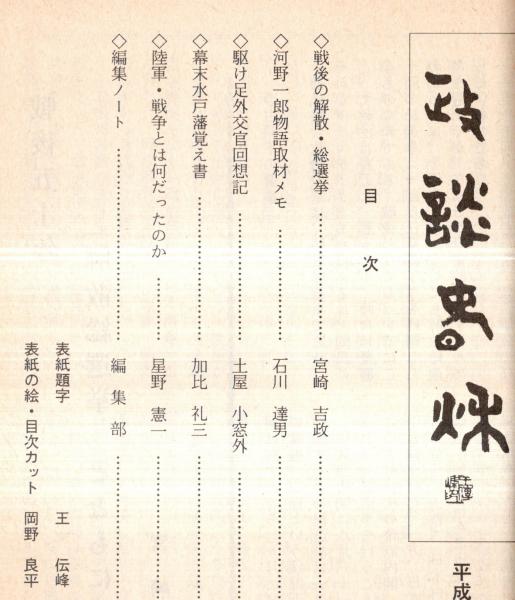 政談春秋
平成
目次
◇戦後の解散・総選挙………………宮崎 吉政………………
◇河野一郎物語取材メモ………………石川 達男………………
◇駆け足外交官回想記………………土屋 小窓外………………
◇幕末水戸藩覚え書………………加比 礼三………………
◇陸軍・戦争とは何だったのか………星野 憲一………………
◇編集ノート………………編集部………………
表紙題字 王 伝峰
表紙の絵・目次カット 岡野 良平